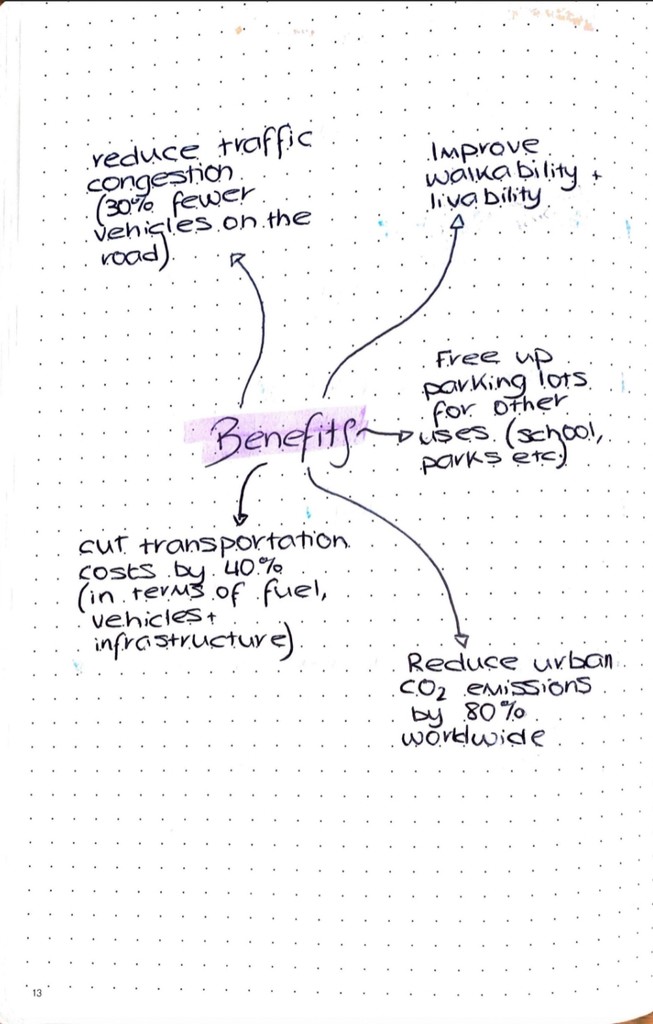 reduce traffic
congestion
(30% fewer
vehicles on the
road)
Improve
walkability +
livability
Free up
parking lots
for other
uses (school,
parks etc)
Benefits
cut transportation
costs by 40%
(in terms of fuel,
vehicles +
infrastructure)
Reduce urban
CO₂ emissions
by 80%
worldwide
13